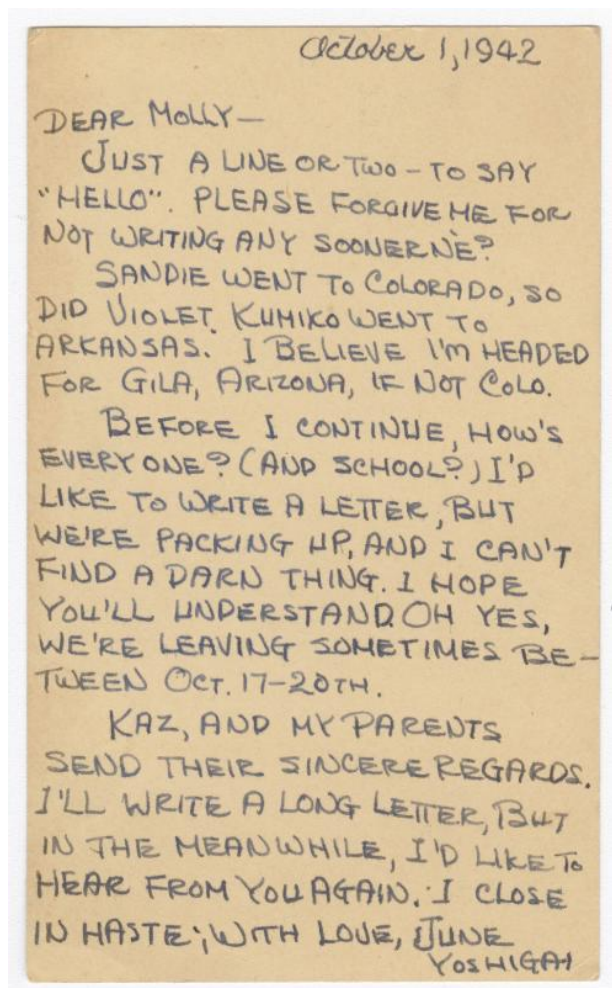 October 1, 1942
DEAR MOLLY—
JUST A LINE OR TWO – TO SAY
"HELLO". PLEASE FORGIVE ME FOR
NOT WRITING ANY SOONER NE?
SANDIE WENT TO COLORADO, SO
DID VIOLET. KUMIKO WENT TO
ARKANSAS. I BELIEVE I'M HEADED
FOR GILA, ARIZONA, IF NOT COLO.
BEFORE I CONTINUE, HOW'S
EVERYONE? (AND SCHOOL?) I'D
LIKE TO WRITE A LETTER, BUT
WE'RE PACKING UP, AND I CAN'T
FIND A DARN THING. I HOPE
YOU'LL UNDERSTAND. OH YES,
WE'RE LEAVING SOMETIMES BE-
TWEEN OCT. 17-20TH.
KAZ, AND MY PARENTS
SEND THEIR SINCERE REGARDS.
I'LL WRITE A LONG LETTER, BUT
IN THE MEANWHILE, I'D LIKE TO
HEAR FROM YOU AGAIN. I CLOSE
IN HASTE; WITH LOVE, JUNE
YOSHIGAI